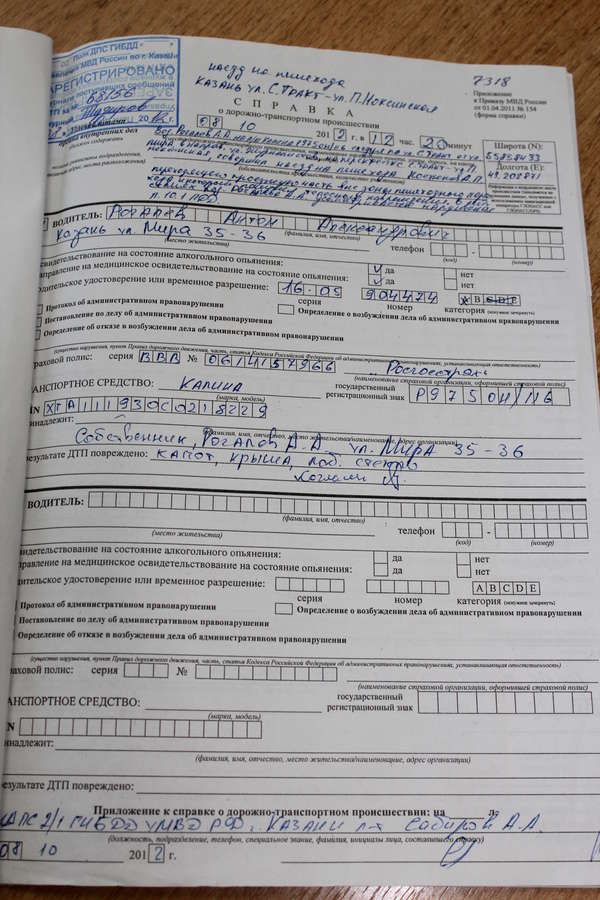 Полк ДПС ГИБДД
МВД России по г. Казани
РЕГИСТРИРОВАНО
68156
наезд на пешехода
Казань ул. С. Тракт - ул. П. Ноксинская
7318
Приложение
к Приказу МВД России
от 01.04.2011 № 154
(форма справки)
СПРАВКА
о дорожно-транспортном происшествии
08 10 2012 г. в 12 час. 20 минут
Широта (N):
55.858433
Долгота (E):
49.208871
совершил наезд на пешехода
п. 10.1 ПДД
ВОДИТЕЛЬ: Рогалов Антон Александрович
(фамилия, имя, отчество)
Казань ул. Мира 35-36
(место жительства)
телефон
(код) (номер)
свидетельствование на состояние алкогольного опьянения: да нет
аправление на медицинское освидетельствование на состояние опьянения: да нет
одительское удостоверение или временное разрешение: 16-05 904474
серия номер категория (ненужное зачеркнуть)
Протокол об административном правонарушении
Определение о возбуждении дела об административном правонарушении
Постановление по делу об административном правонарушении
Определение об отказе в возбуждении дела об административном правонарушении
(существо нарушения, пункт Правил дорожного движения, часть, статья Кодекса Российской Федерации об административных правонарушениях, устанавливающая ответственность)
раховой полис: серия ВВВ № 0614157966 Росгосстрах
(наименование страховой организации, оформившей страховой полис)
АНСПОРТНОЕ СРЕДСТВО: Калина
(марка, модель)
государственный
регистрационный знак Р975ОН/116
IN ХТА111930С0218229
инадлежит:
(фамилия, имя, отчество, место жительства/наименование, адрес организации)
Собственник, Рогалов А.А. ул. Мира 35-36
результате ДТП повреждено: капот, крыша, лоб. стекло
Согласен
ВОДИТЕЛЬ:
(фамилия, имя, отчество)
(место жительства)
телефон
(код) (номер)
видетельствование на состояние алкогольного опьянения: да нет
правление на медицинское освидетельствование на состояние опьянения: да нет
дительское удостоверение или временное разрешение: A B C D E
серия номер категория (ненужное зачеркнуть)
Протокол об административном правонарушении
Определение о возбуждении дела об административном правонарушении
Постановление по делу об административном правонарушении
Определение об отказе в возбуждении дела об административном правонарушении
(существо нарушения, пункт Правил дорожного движения, часть, статья Кодекса Российской Федерации об административных правонарушениях, устанавливающая ответственность)
раховой полис: серия №
(наименование страховой организации, оформившей страховой полис)
АНСПОРТНОЕ СРЕДСТВО:
(марка, модель)
государственный
регистрационный знак
IN
инадлежит:
(фамилия, имя, отчество, место жительства/наименование, адрес организации)
езультате ДТП повреждено:
Приложение к справке о дорожно-транспортном происшествии: на л.
ДПС 2/1 ГИБДД УМВД РФ г. Казани л-т Сабиров А.А.
(должность, подразделение, телефон, специальное звание, фамилия, инициалы лица, составившего справку)
08 10 2012 г.